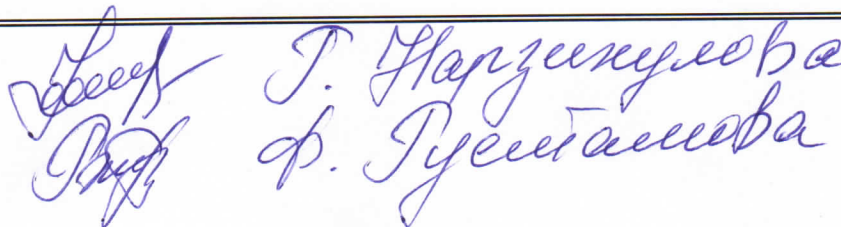 Г. Нарзикулова
Ф. Рустамова